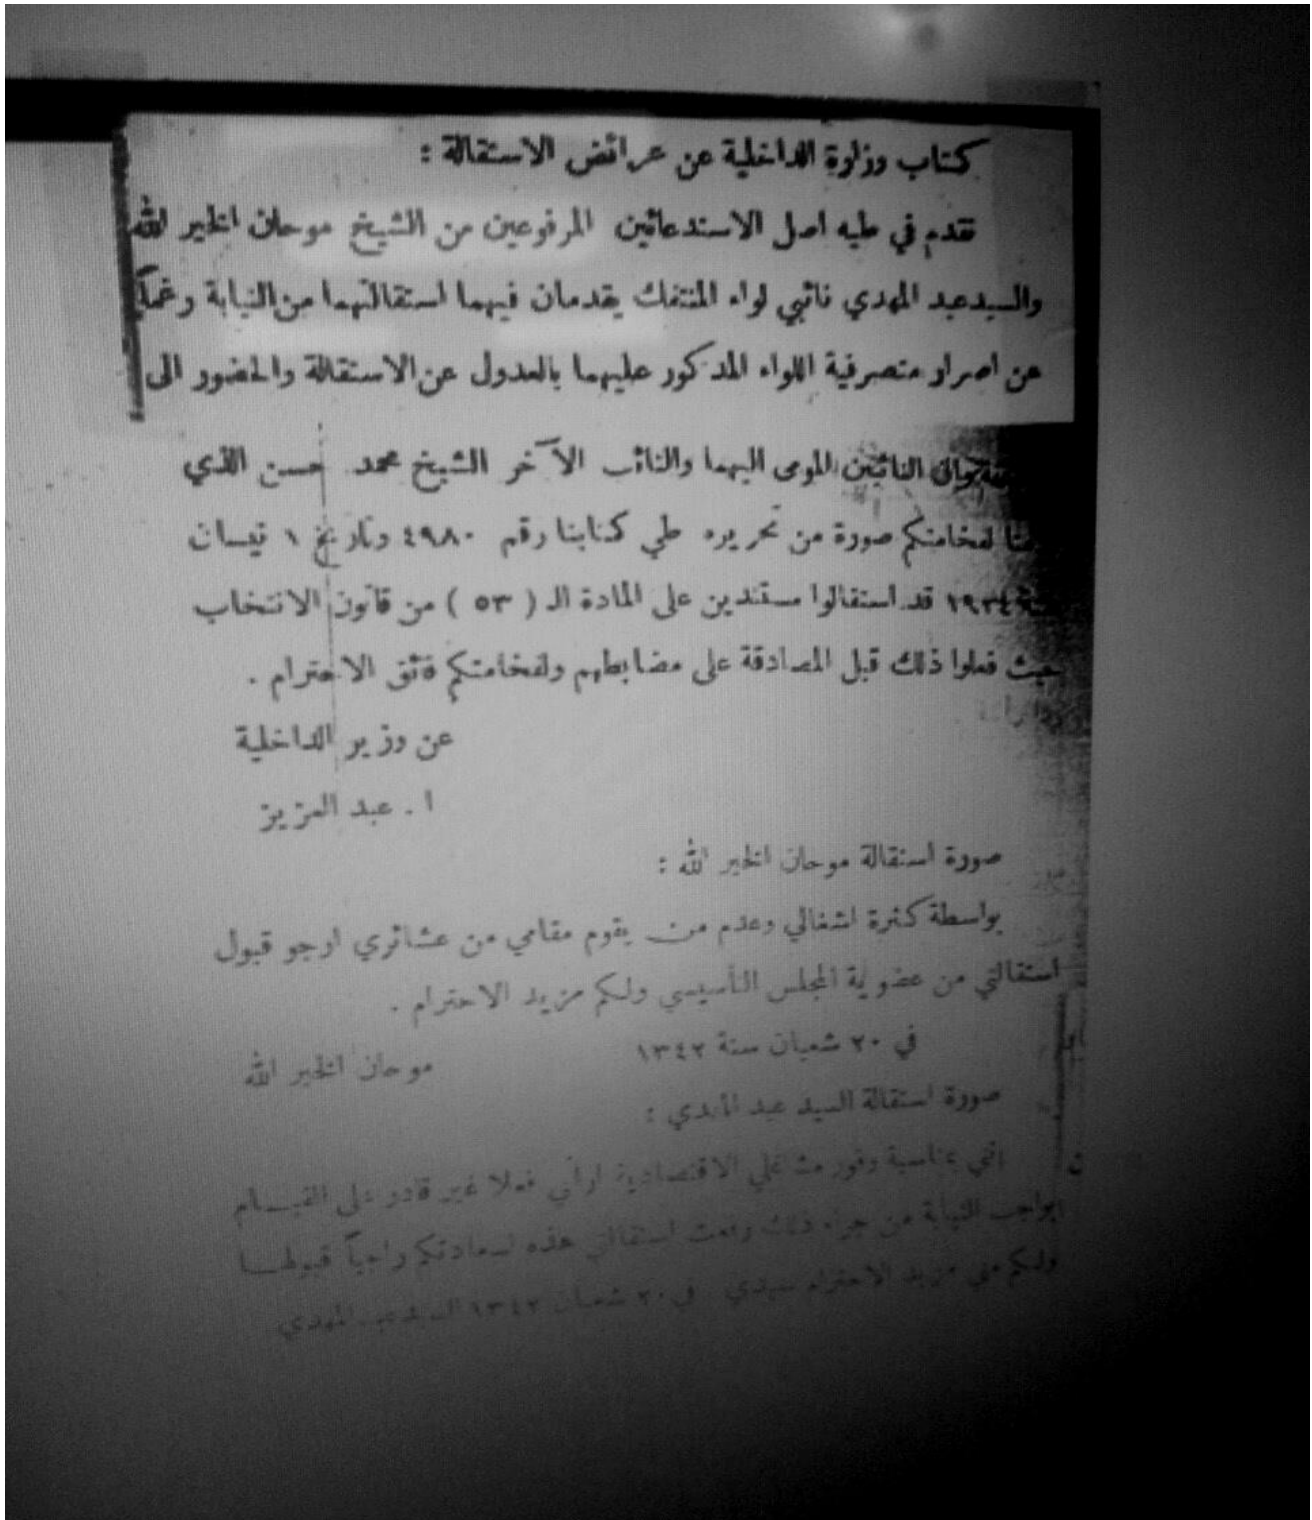 كتاب وزارة الداخلية عن عرائض الاستقالة :
نقدم في طيه اصل الاستدعائين المرفوعين من الشيخ موحان الخير الله
والسيد عبد المهدي نائبي لواء المنتفك يقدمان فيهما استقالتهما من النيابة رغماً
عن اصرار متصرفية اللواء المذكور عليهما بالعدول عن الاستقالة والحضور الى
النائبين المومى اليهما والنائب الآخر الشيخ محمد حسن الذي
لفخامتكم صورة من تحريره طي كتابنا رقم ٤٩٨٠ وتاريخ ١ نيسان
١٩٢٤ قد استقالوا مستندين على المادة الـ ( ٥٣ ) من قانون الانتخاب
حيث فعلوا ذلك قبل المصادقة على مضابطهم ولفخامتكم فائق الاحترام .
عن وزير الداخلية
ا . عبد العزيز
صورة استقالة موحان الخير الله :
بواسطة كثرة اشغالي وعدم من يقوم مقامي من عشائري ارجو قبول
استقالتي من عضوية المجلس التأسيسي ولكم مزيد الاحترام .
في ٢٠ شعبان سنة ١٣٤٢
موحان الخير الله
صورة استقالة السيد عبد المهدي :
إنني بمناسبة وفور مشاغلي الاقتصادية اراني فعلا غير قادر على القيام
بواجب النيابة من جراء ذلك رفعت استقالتي هذه لسعادتكم راجياً قبولها
ولكم مني مزيد الاحترام سيدي في ٢٠ شعبان ١٣٤٢ السيد عبد المهدي